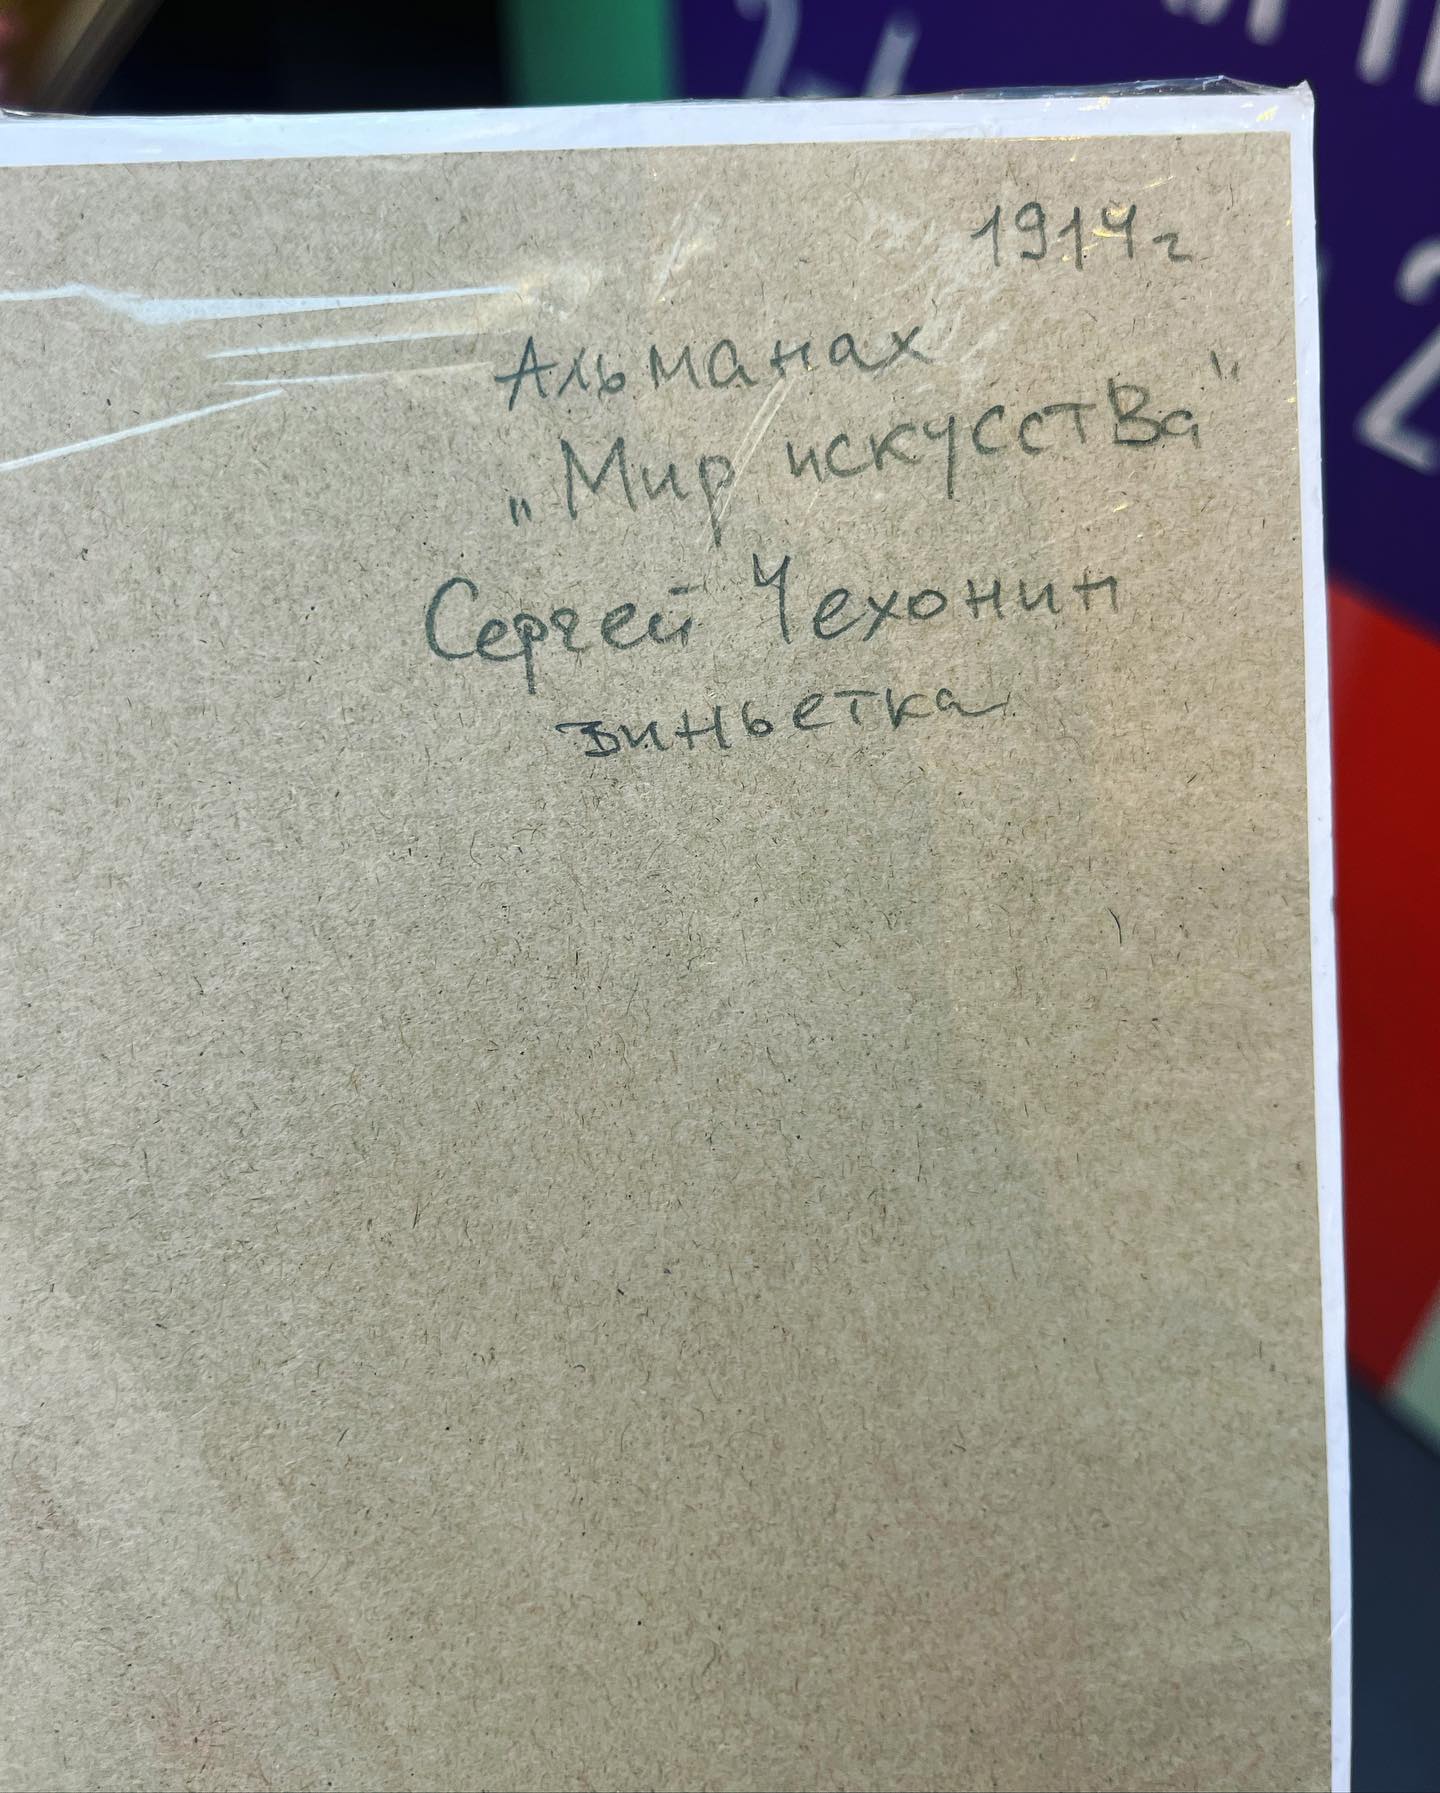 1914г
Альманах
„Мир искусства"
Сергей Чехонин
виньетка